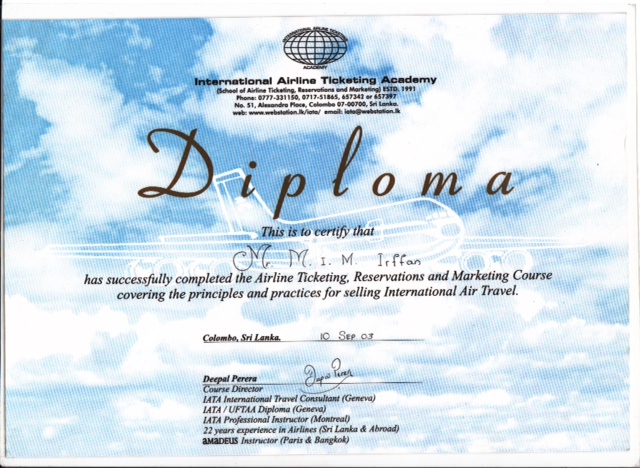 INTERNATIONAL AIRLINE TICKETING
ACADEMY
International Airline Ticketing Academy
(School of Airline Ticketing, Reservations and Marketing) ESTD. 1991
Phone: 0777-331150, 0717-51865, 657342 or 657397
No. 51, Alexandra Place, Colombo 07-00700, Sri Lanka.
web: www.webstation.lk/iata/ email: iata@webstation.lk
Diploma
This is to certify that
Mr. M. I. M. Irffan
has successfully completed the Airline Ticketing, Reservations and Marketing Course
covering the principles and practices for selling International Air Travel.
Colombo, Sri Lanka. 10 SEP 03
Deepal Perera
Course Director
IATA International Travel Consultant (Geneva)
IATA / UFTAA Diploma (Geneva)
IATA Professional Instructor (Montreal)
22 years experience in Airlines (Sri Lanka & Abroad)
AMADEUS Instructor (Paris & Bangkok)